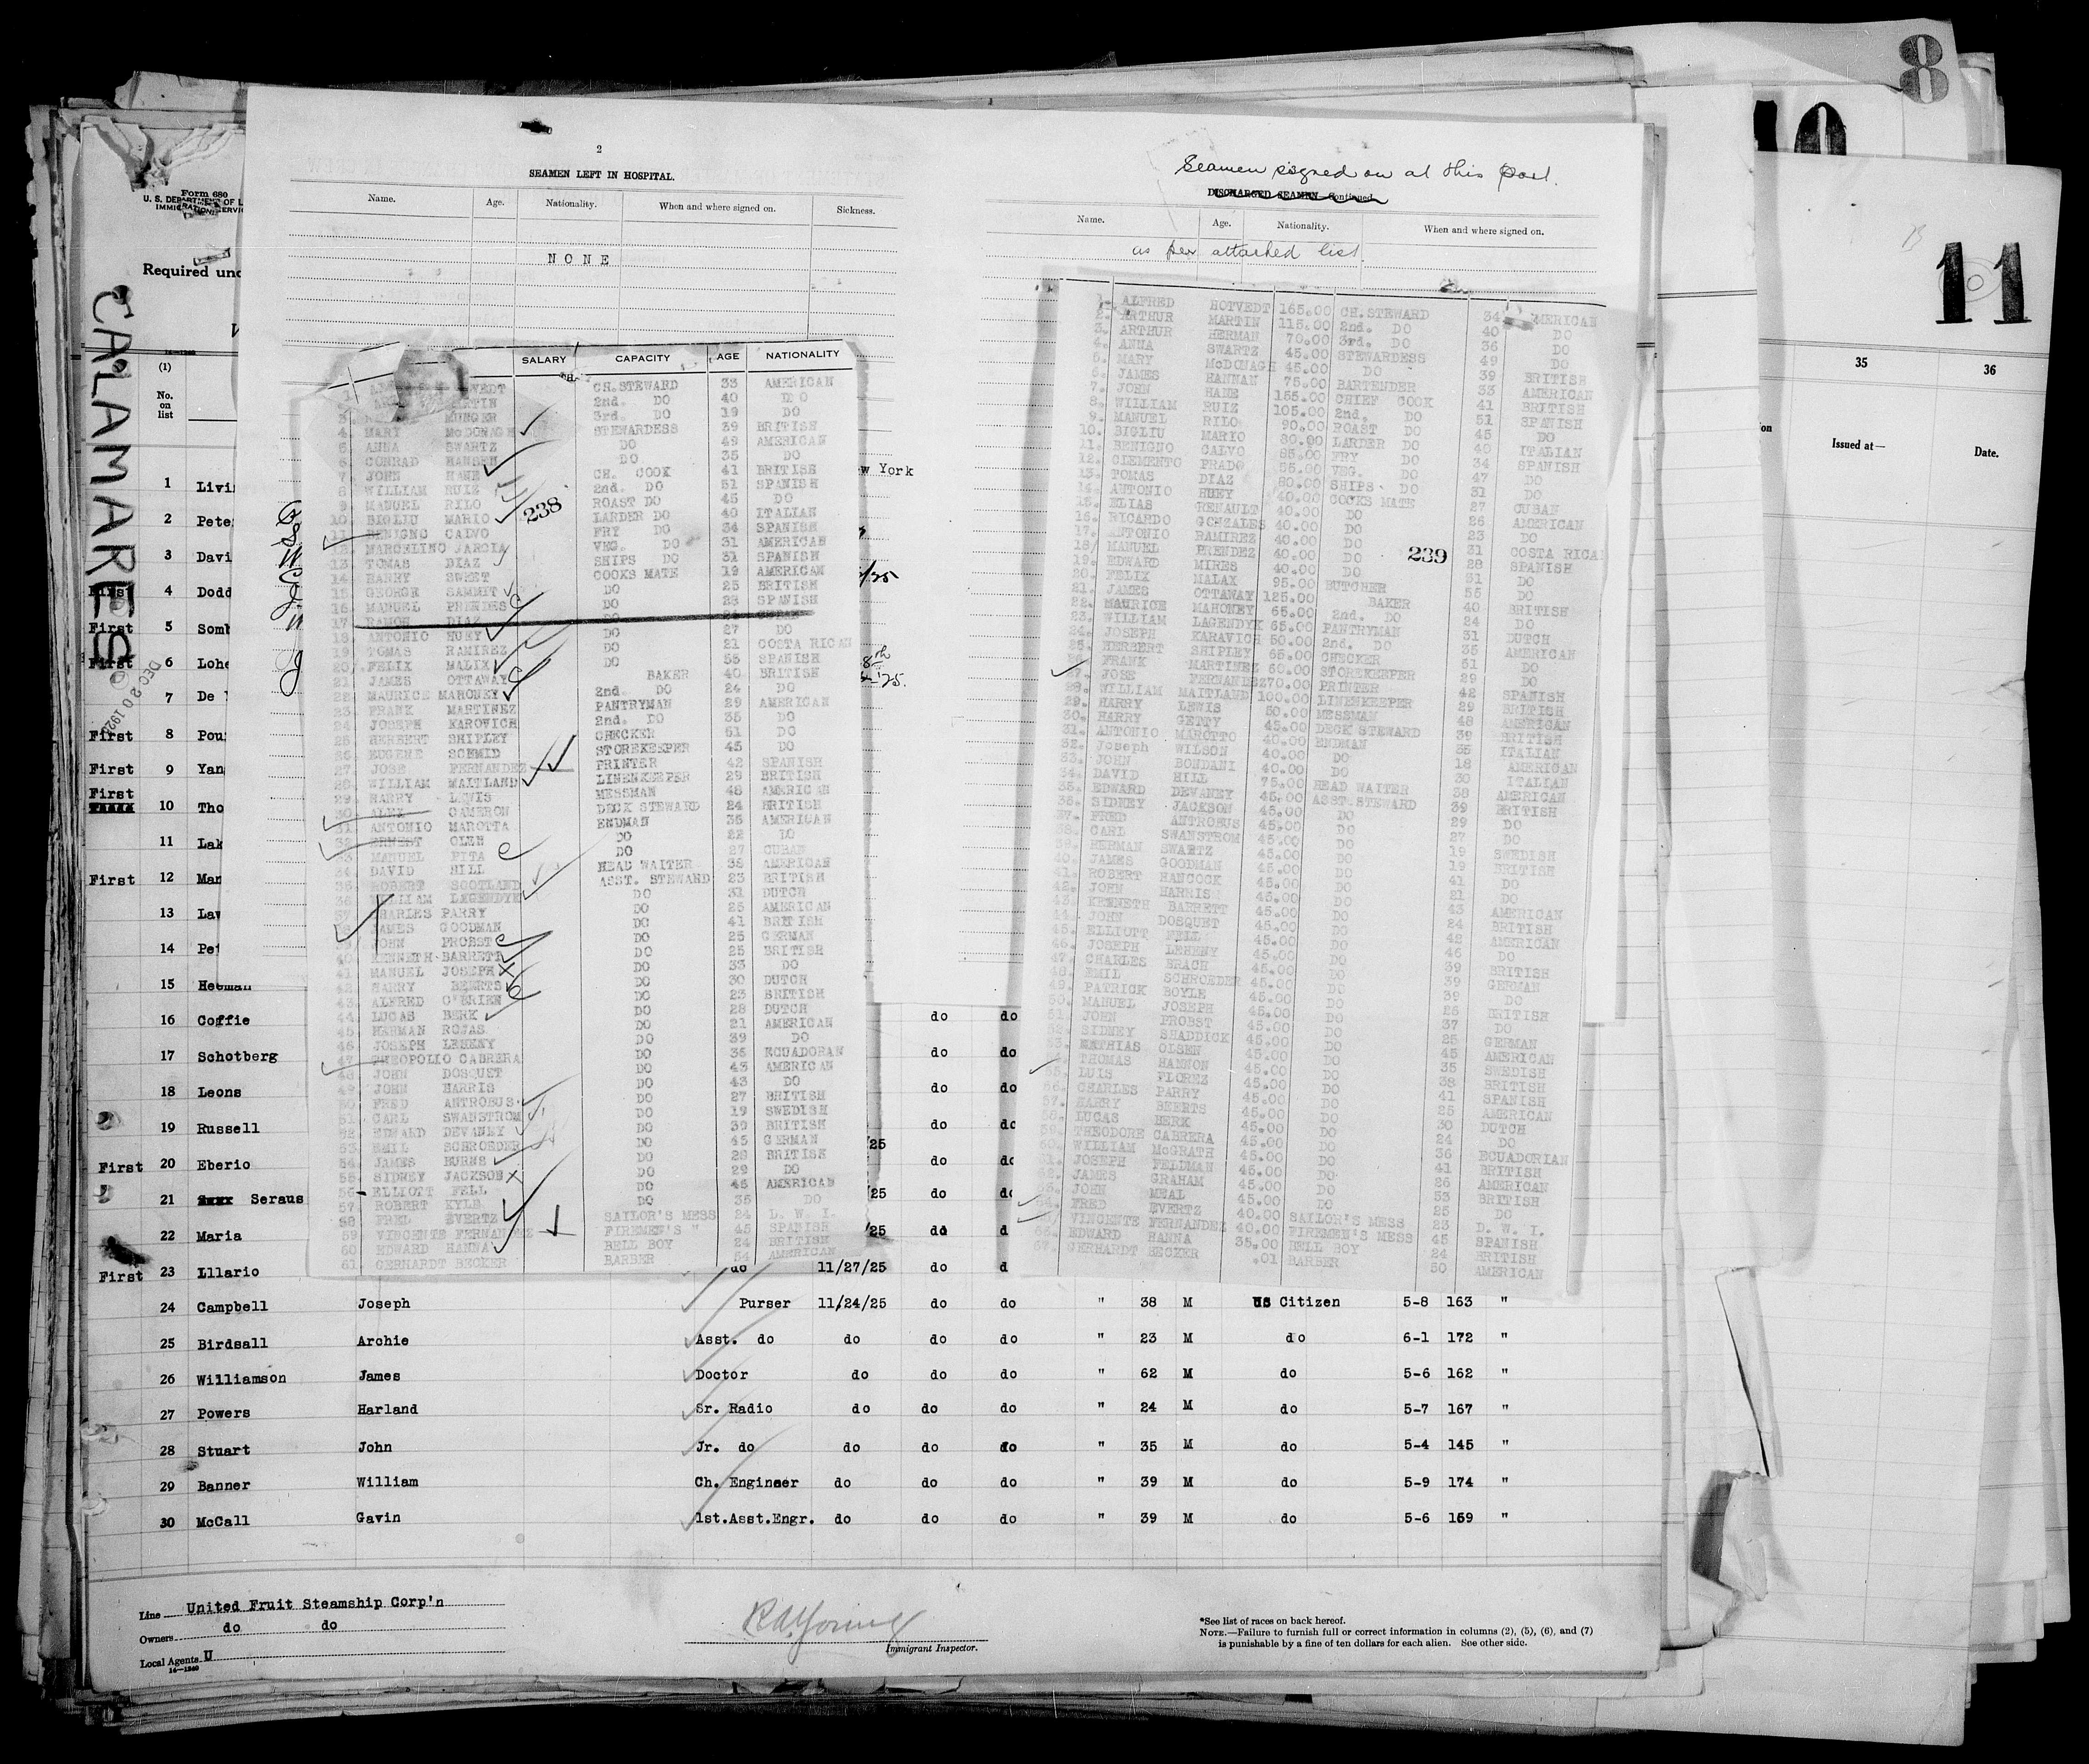 8
11
35
36
Issued at—
Date.
Form 680
U. S. DEPARTMENT OF L
IMMIGRATION SERVIC
Required und
CALAMARES
DEC 20 192
(1)
No.
on
list
2
SEAMEN LEFT IN HOSPITAL.
Name. Age. Nationality. When and where signed on. Sickness.
NONE
Seamen signed on at this port.
DISCHARGED SEAMEN—Continued
Name. Age. Nationality. When and where signed on.
as per attached list.
SALARY CAPACITY AGE NATIONALITY
CH.STEWARD 33 AMERICAN
2nd. DO 40 DO
MUNGER 3rd. DO 19 DO
4. MARY McDONAGH STEWARDESS 39 BRITISH
5. ANNA SWARTZ DO 49 AMERICAN
6. CONRAD HANSEN DO 35 DO
7. JOHN HANE CH. COOK 41 BRITISH
8 WILLIAM RUIZ 2nd. DO 51 SPANISH
9. MANUEL RILO ROAST DO 45 DO
10. BIGLIU MARIO LARDER DO 40 ITALIAN
11. BENIGNO CALVO FRY DO 34 SPANISH
12. MARCELINO JARCIA VEG. DO 31 AMERICAN
13 TOMAS DIAZ SHIPS DO 31 SPANISH
14 HARRY SWEET COOKS MATE 19 AMERICAN
15. GEORGE SAMMIT DO 25 BRITISH
16. MANUEL PRENDES DO 28 SPANISH
17. RAMON DIAZ DO
18 ANTONIO HUEY DO 27 DO
19. TOMAS RAMIREZ DO 21 COSTA RICAN
20. FELIX MALIX DO 55 SPANISH
21 JAMES OTTAWAY BAKER 40 BRITISH
22 MAURICE MAHONEY 2nd. DO 24 DO
23. FRANK MARTINEZ PANTRYMAN 29 AMERICAN
24 JOSEPH KAROVICH 2nd. DO 35 DO
25 HERBERT SHIPLEY CHECKER 51 DO
26 EUGENE SCHMID STOREKEEPER 45 DO
27. JOSE FERNANDEZ PRINTER 42 SPANISH
28. WILLIAM MAITLAND LINENKEEPER 29 BRITISH
29. HARRY LEWIS MESSMAN 48 AMERICAN
30. ALEX CAMERON DECK STEWARD 24 BRITISH
31. ANTONIO MAROTTA ENDMAN 35 AMERICAN
32 ERNEST OLEN DO 22 DO
33 MANUEL PITA DO 27 CUBAN
34 DAVID HILL HEAD WAITER 38 AMERICAN
35. ROBERT SCOTLAND ASST. STEWARD 23 BRITISH
36 WILLIAM LEGENDYK DO 31 DUTCH
37 CHARLES PARRY DO 25 AMERICAN
38 JAMES GOODMAN DO 41 BRITISH
39 JOHN PROBST DO 25 GERMAN
40. KENNETH BARRETT DO 25 BRITISH
41 MANUEL JOSEPH DO 33 DO
42 HARRY BEERTS DO 30 DUTCH
43. ALFRED O'BRIEN DO 23 BRITISH
44. LUCAS BERK DO 28 DUTCH
45 HARMAN ROJAS DO 21 AMERICAN
46 JOSEPH LEHENY DO 39 DO
47. THEOPOLIO CABRERA DO 36 ECUADORAN
48 JOHN DOSQUET DO 43 AMERICAN
49 JOHN HARRIS DO 43 DO
50 FRED ANTROBUS DO 27 BRITISH
51. CARL SWANSTROM DO 19 SWEDISH
52 EDWARD DEVANEY DO 39 BRITISH
53. EMIL SCHROEDER DO 45 GERMAN
54. JAMES BURNS DO 28 BRITISH
55 SIDNEY JACKSON DO 29 DO
56 ELLIOTT FELL DO 46 AMERICAN
57. ROBERT KYLE DO 35 DO
58 FRED EVERTZ SAILOR'S MESS 24 D. W. I.
59. VINCENTE FERNANDEZ FIREMEN'S " 45 SPANISH
60. EDWARD HANNA BELL BOY 24 BRITISH
61. GERHARDT BECKER BARBER 54 AMERICAN
238
1. ALFRED HOTVEDT 165.00 CH.STEWARD 34 AMERICAN
2. ARTHUR MARTIN 115.00 2nd. DO 40 DO
3. ARTHUR HERMAN 70.00 3rd. DO 36 DO
4. ANNA SWARTZ 45.00 STEWARDESS 49 DO
5. MARY McDONAGH 45.00 DO 39 BRITISH
6. JAMES HANNAN 75.00 BARTENDER 33 AMERICAN
7. JOHN HANE 155.00 CHIEF COOK 41 BRITISH
8. WILLIAM RUIZ 105.00 2nd. DO 51 SPANISH
9. MANUEL RILO 90.00 ROAST DO 45 DO
10. BIGLIU MARIO 80.00 LARDER DO 40 ITALIAN
11. BENIGNO CALVO 85.00 FRY DO 34 SPANISH
12. CLEMENTO PRADO 55.00 VEG. DO 47 DO
13. TOMAS DIAZ 80.00 SHIPS DO 31 DO
14. ANTONIO HUEY 40.00 COOKS MATE 27 CUBAN
15. ELIAS RENAULT 40.00 DO 26 AMERICAN
16. RICARDO GONZALES 40.00 DO 23 DO
17. ANTONIO RAMIREZ 40.00 DO 31 COSTA RICA
18. MANUEL PRENDEZ 40.00 DO 28 SPANISH
19. EDWARD MIRES 40.00 DO 31 DO
20. FELIX MALAX 95.00 BUTCHER 55 DO
21. JAMES OTTAWAY 125.00 BAKER 40 BRITISH
22. MAURICE MAHONEY 65.00 2nd. DO 24 DO
23. WILLIAM LAGENDYK 65.00 PANTRYMAN 31 DUTCH
24. JOSEPH KARAVICH 50.00 2nd. DO 35 AMERICAN
25. HERBERT SHIPLEY 65.00 CHECKER 51 DO
26. FRANK MARTINEZ 60.00 STOREKEEPER 29 DO
27. JOSE FERNANDEZ 70.00 PRINTER 42 SPANISH
28. WILLIAM MAITLAND 100.00 LINENKEEPER 29 BRITISH
29. HARRY LEWIS 50.00 MESSMAN 48 AMERICAN
30. HARRY GETTY 45.00 DECK STEWARD 39 BRITISH
31. ANTONIO MAROTTO 40.00 ENDMAN 35 ITALIAN
32. Joseph WILSON 40.00 DO 18 AMERICAN
33. JOHN BONDANI 40.00 DO 30 ITALIAN
34. DAVID HILL 75.00 HEAD WAITER 38 AMERICAN
35. EDWARD DEVANEY 45.00 ASST.STEWARD 39 BRITISH
36. SIDNEY JACKSON 45.00 DO 29 DO
37. FRED ANTROBUS 45.00 DO 27 DO
38. CARL SWANSTROM 45.00 DO 19 SWEDISH
39. HERMAN SWARTZ 45.00 DO 19 BRITISH
40. JAMES GOODMAN 45.00 DO 41 DO
41. ROBERT HANCOCK 45.00 DO 21 DO
42. JOHN HARRIS 45.00 DO 43 AMERICAN
43. KENNETH BARRETT 45.00 DO 24 BRITISH
44. JOHN DOSQUET 45.00 DO 42 AMERICAN
45. ELLIOTT FELL 45.00 DO 46 DO
46. JOSEPH LEHENY 45.00 DO 39 BRITISH
47. CHARLES BRACH 45.00 DO 39 GERMAN
48. EMIL SCHROEDER 45.00 DO 39 DO
49. PATRICK BOYLE 45.00 DO 26 BRITISH
50. MANUEL JOSEPH 45.00 DO 37 DO
51. JOHN PROBST 45.00 DO 25 GERMAN
52. SIDNEY SHADDICK 45.00 DO 45 AMERICAN
53. MATHIAS OLSEN 45.00 DO 35 SWEDISH
54. THOMAS HANNON 45.00 DO 38 BRITISH
55. LUIS FLOREZ 45.00 DO 41 SPANISH
56. CHARLES PARRY 45.00 DO 25 AMERICAN
57. HARRY BEERTS 45.00 DO 30 DUTCH
58. LUCAS BERK 45.00 DO 24 DO
59. THEODORE CABRERA 45.00 DO 36 ECUADORIAN
60. WILLIAM McGRATH 45.00 DO 41 BRITISH
61. JOSEPH FELDMAN 45.00 DO 26 AMERICAN
62. JAMES GRAHAM 45.00 DO 53 BRITISH
63. JOHN MEAL 45.00 DO 25 DO
64. FRED EVERTZ 40.00 SAILOR'S MESS 23 D. W. I.
65. VINCENTE FERNANDEZ 40.00 FIREMEN'S MESS 45 SPANISH
66. EDWARD HANNA 35.00 BELL BOY 24 BRITISH
67. GERHARDT BECKER .01 BARBER 50 AMERICAN
239
1 Livi
w York
2 Pete
3 Davi
First 4 Dodd
First 5 Somb
First 6 Lohe
7 De
First 8 Pou
First 9 Yan
First 10 Tho
11 Lak
First 12 Man
13 Law
14 Pei
15 Heeman
16 Coffie do do
17 Schotberg do do
18 Leons do do
19 Russell do do
First 20 Eberio do
21 Seraus do
22 Maria do
First 23 Lllario do 11/27/25 do
24 Campbell Joseph Purser 11/24/25 do do " 38 M US Citizen 5-8 163 "
25 Birdsall Archie Asst. do do do do " 23 M do 6-1 172 "
26 Williamson James Doctor do do do " 62 M do 5-6 162 "
27 Powers Harland Sr. Radio do do do " 24 M do 5-7 167 "
28 Stuart John Jr. do do do do " 35 M do 5-4 145 "
29 Banner William Ch. Engineer do do do " 39 M do 5-9 174 "
30 McCall Gavin 1st.Asst.Engr. do do do " 39 M do 5-6 159 "
Line United Fruit Steamship Corp'n
Owners do do
Local Agents U
14—1240
Immigrant Inspector.
*See list of races on back hereof.
NOTE.—Failure to furnish full or correct information in columns (2), (5), (6), and (7)
is punishable by a fine of ten dollars for each alien. See other side.